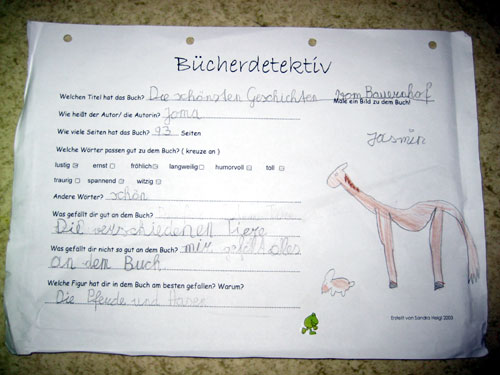 Bücherdetektiv
Welchen Titel hat das Buch? Die schönsten Geschichten vom Bauernhof
Male ein Bild zu dem Buch!
Wie heißt der Autor/ die Autorin? Joma
Jasmin
Wie viele Seiten hat das Buch? 93 Seiten
Welche Wörter passen gut zu dem Buch? ( kreuze an )
lustig ernst fröhlich langweilig humorvoll toll
traurig spannend witzig
Andere Wörter? schön
Was gefällt dir gut an dem Buch?
Die verschiedenen Tiere
Was gefällt dir nicht so gut an dem Buch? mir gefällt alles
an dem Buch
Welche Figur hat dir in dem Buch am besten gefallen? Warum?
Die Pferde und Hasen
Erstellt von Sandra Heigl 2003